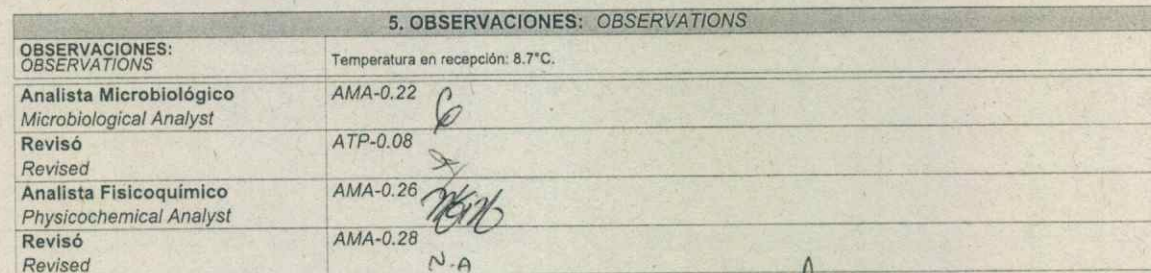 5. OBSERVACIONES: OBSERVATIONS
OBSERVACIONES:
OBSERVATIONS
Temperatura en recepción: 8.7°C.
Analista Microbiológico
Microbiological Analyst
AMA-0.22
Revisó
Revised
ATP-0.08
Analista Fisicoquímico
Physicochemical Analyst
AMA-0.26
Revisó
Revised
AMA-0.28
N.A